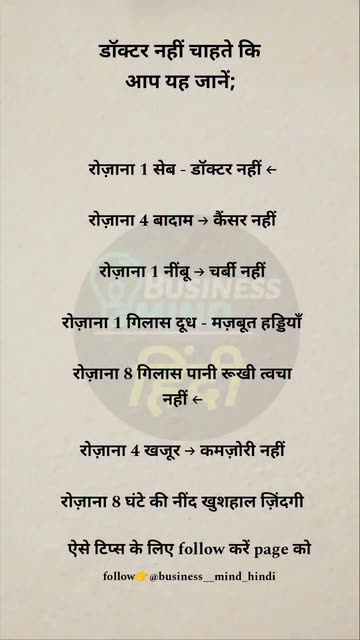 डॉक्टर नहीं चाहते कि
आप यह जानें;
रोज़ाना 1 सेब - डॉक्टर नहीं ←
रोज़ाना 4 बादाम → कैंसर नहीं
रोज़ाना 1 नींबू → चर्बी नहीं
BUSINESS
MIND
हिंदी
रोज़ाना 1 गिलास दूध - मज़बूत हड्डियाँ
रोज़ाना 8 गिलास पानी रूखी त्वचा
नहीं ←
रोज़ाना 4 खजूर → कमज़ोरी नहीं
रोज़ाना 8 घंटे की नींद खुशहाल ज़िंदगी
ऐसे टिप्स के लिए follow करें page को
follow👉@business__mind_hindi